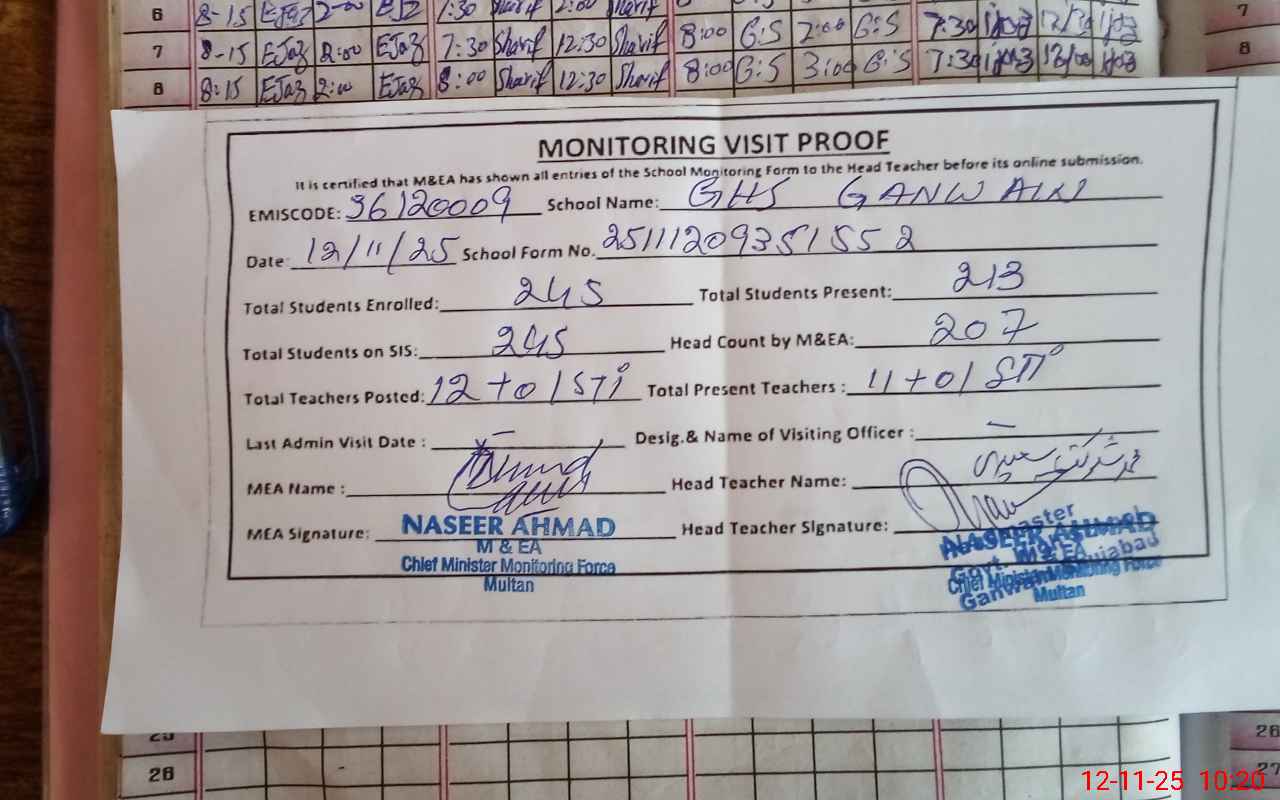 6 8-15 EJaz 2-00 EJZ 7:30 Sharif 2:00 Sharif 8:00 G:S
7 8-15 EJaz 2:00 EJaz 7:30 Sharif 12:30 Sharif 8:00 G:S 2:00 G:S 7:30 7
8 8:15 EJaz 2:00 EJaz 8:00 Sharif 12:30 Sharif 8:00 G:S 3:00 G:S 7:30 8
MONITORING VISIT PROOF
It is certified that M&EA has shown all entries of the School Monitoring Form to the Head Teacher before its online submission.
EMISCODE: 36120009 School Name: GHS GANWAIN
Date: 12/11/25 School Form No. 25111209351552
Total Students Enrolled: 245 Total Students Present: 213
Total Students on SIS: 245 Head Count by M&EA: 207
Total Teachers Posted: 12+01STI Total Present Teachers: 11+01STI
Last Admin Visit Date : — Desig.& Name of Visiting Officer : —
MEA Name : Head Teacher Name:
MEA Signature: Head Teacher Signature:
NASEER AHMAD
M & EA
Chief Minister Monitoring Force
Multan
NASEER AHMAD
M & EA
Chief Minister Monitoring Force
Multan
25
26 26
27
12-11-25 10:20